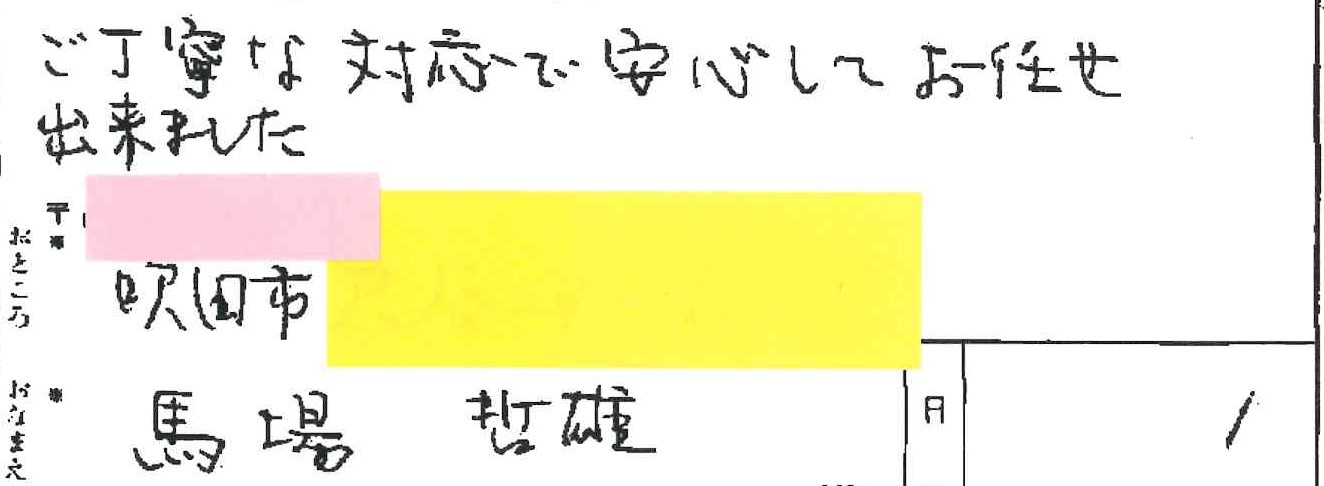 ご丁寧な対応で安心してお任せ
出来ました
〒
※
おところ
吹田市
※
おなまえ
馬場 哲雄
月
1